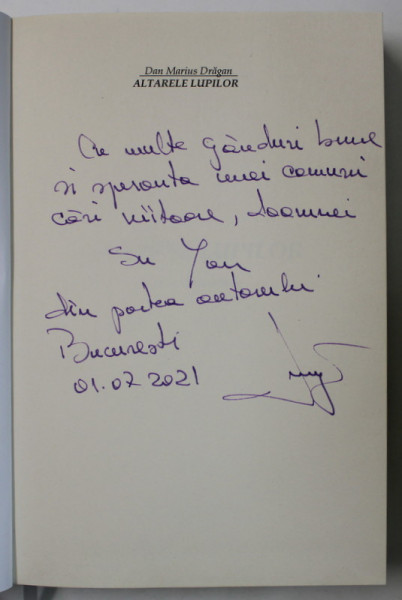 Dan Marius Drăgan
ALTARELE LUPILOR
Cu multe gânduri bune
și speranța unei comuni
cări viitoare, doamnei
Su Yan
din partea autorului
București
01.07.2021